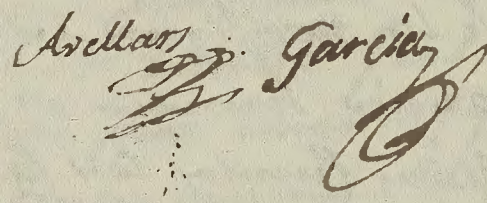 Avellan Garcia